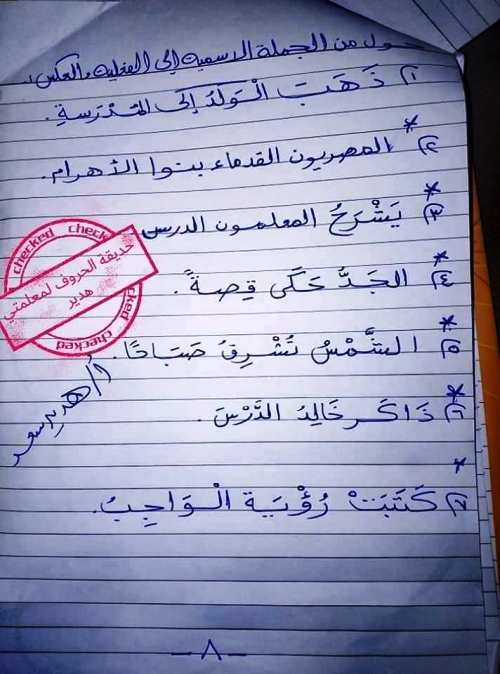 حول من الجملة الاسمية إلى الفعلية والعكس:
١) ذَهَبَ الْوَلَدُ إِلَى المَدْرَسةِ.
* ٢) المصريون القدماء بنوا الأهرام.
* ٣) يَشْرَحُ المعلمون الدرس
* ٤) الجَدُّ حَكَى قِصةً.
* ٥) الشَّمْسُ تُشْرِقُ صَبَاحًا.
* ٦) ذَاكَر خَالِدُ الدَّرْسَ.
* ٧) كَتَبَتْ رُؤْيَة الْوَاجِبُ.
checked checked
حديقة الحروف لمعلمتي
هدير
checked
أ/هدير سعد
- ٨ -